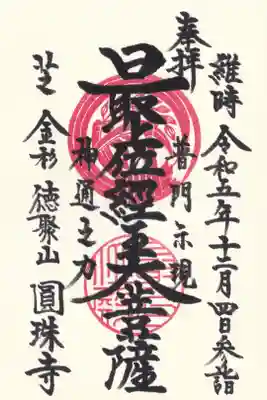 維時 令和五年十二月四日参詣
奉拝
普門示現
最位經王大菩薩
神通之力
芝金杉 徳聚山 圓珠寺